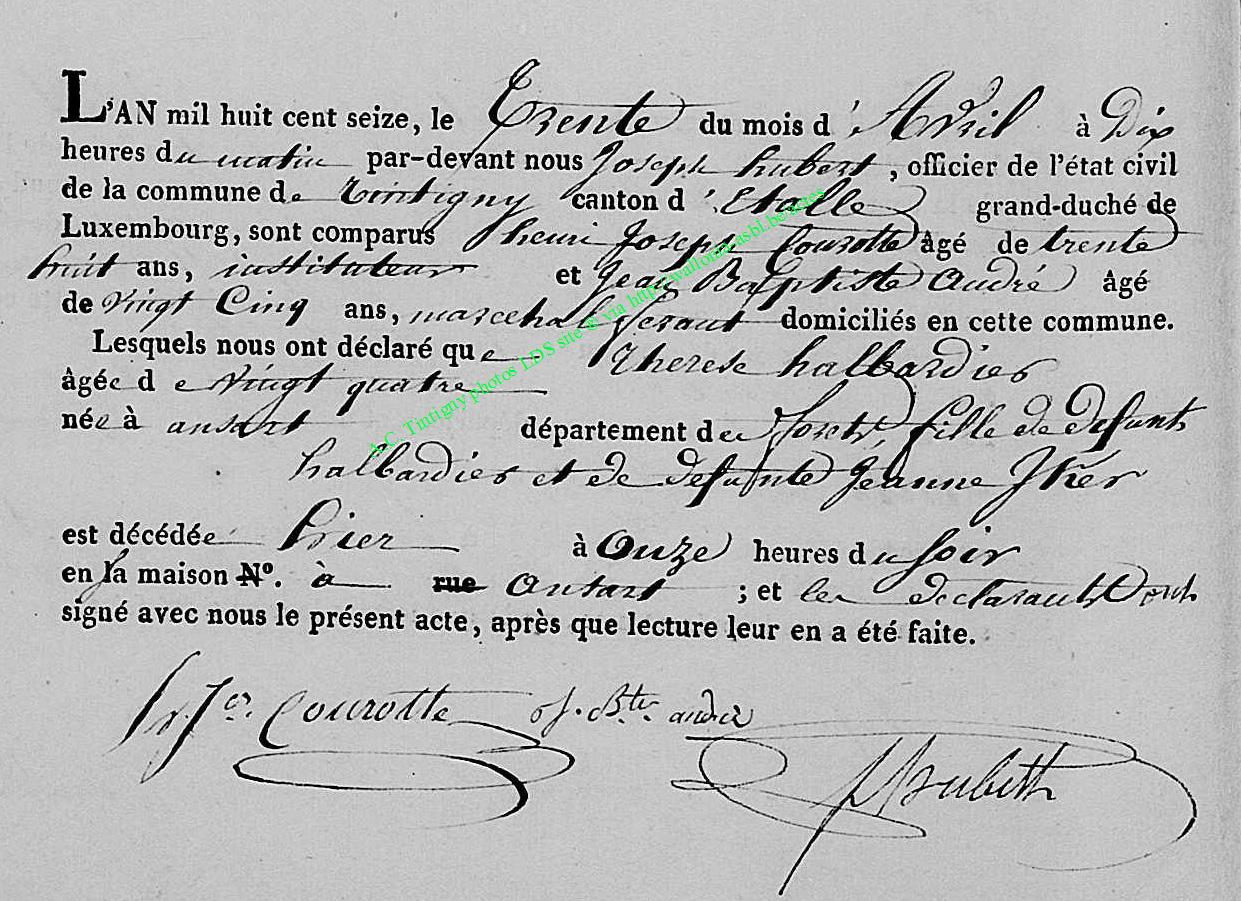 L'AN mil huit cent seize, le Trente du mois d'Avril à Dix
heures du matin par-devant nous Joseph hubert, officier de l'état civil
de la commune de Tintigny canton d'Etalle grand-duché de
Luxembourg, sont comparus henri Joseph Courotte âgé de trente
huit ans, instituteur et Jean Baptiste André âgé
de Vingt Cinq ans, marechal ferant domiciliés en cette commune.
Lesquels nous ont déclaré que Therese halbardier
âgée de Vingt quatre
née à ansart département des forets, fille de defunts
halbardier et de defunte Jeanne
est décédée hier à Onze heures du soir
en la maison N°. à rue Ansart ; et les declarants ont
signé avec nous le présent acte, après que lecture leur en a été faite.
Courotte J. Bte andré
A.C. Tintigny photos LDS site © via http://wallonia.asbl.be/actes